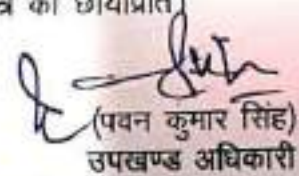 की छायाप्रति
(पवन कुमार सिंह)
उपखण्ड अधिकारी